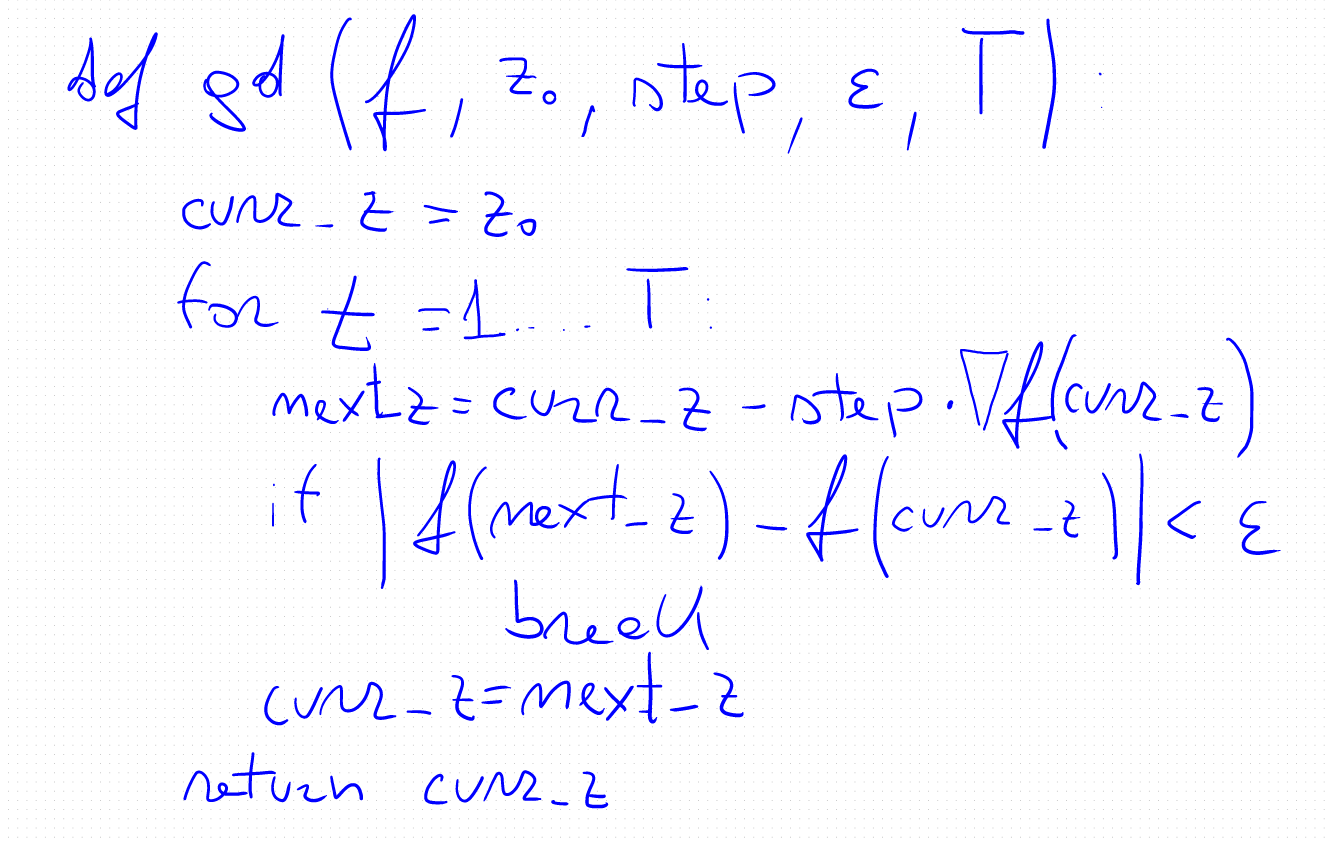 def gd (f, z₀, step, ε, T):
curr_z = z₀
for t = 1.... T:
next_z = curr_z - step · ∇f(curr_z)
if |f(next_z) - f(curr_z)| < ε
break
curr_z = next_z
return curr_z